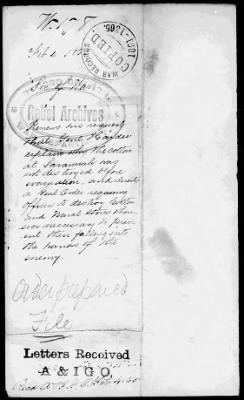 WAR RECORDS
COPIED
1861-1865.
Sec of War
Rebel Archives
Renews his request
that Genl Hardee
explain why the cotton
at Savannah was
not destroyed before
evacuation, and
a Genl Order requiring
officers to destroy Cotton
and Naval stores when
ever necessary to prev
ent their falling into
the hands of the
enemy.
Order prepared
File
Letters Received
A & I G O.